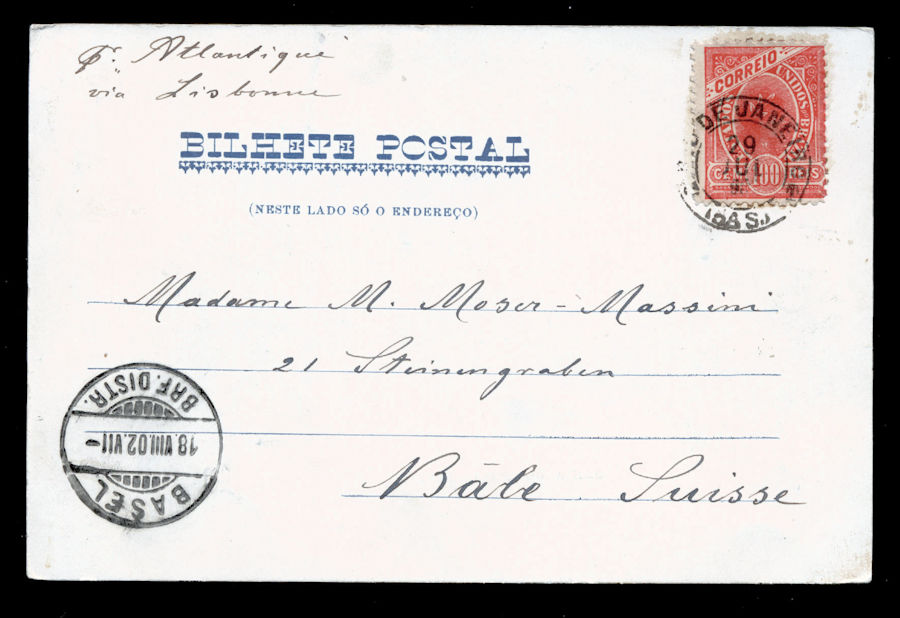 pr. Atlantique
via Lisbonne
BILHETE POSTAL
(NESTE LADO SÓ O ENDEREÇO)
CORREIO
UNIDOS
100
DE JANEIRO
29
Madame M. Moser-Massini
21 Steinengraben
Bâle Suisse
BASEL
18.VIII.02.VII-
BRF. DISTR.